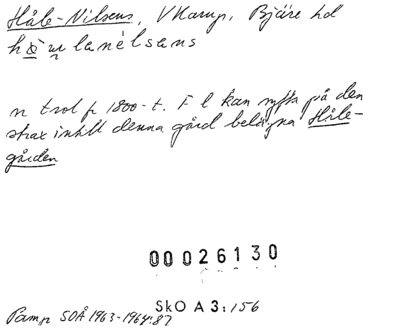 Håle-Nilsens, V Karup, Bjäre hd
n trol fr 1800-t. F l kan syfta på den
strax intill denna gård belägna Håle-
gården
00026130
SkO A 3:156
Pamp SOÅ 1963-1964:87